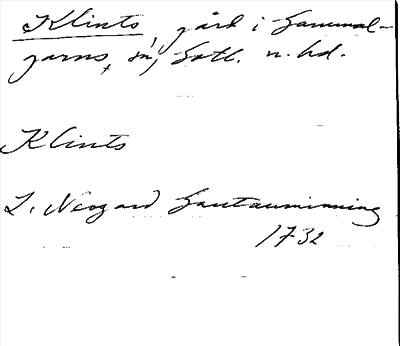 Klints, gård i Gammal-
garns sn, Gotl. n. hd.
Klints
L. Neogard Gautauminning
1732